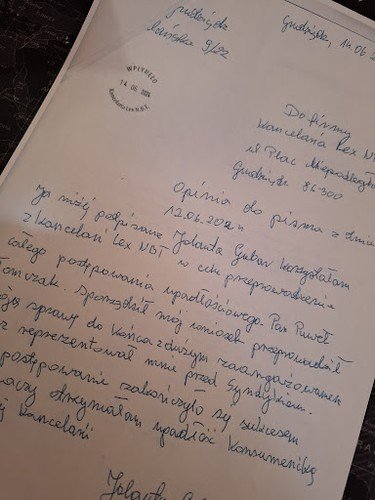 Grudziądz
9/22
Grudziądz, 14.06.2
WPŁYNĘŁO
14. 06. 2024
Kancelaria Lex N.B.T.
Do firmy
Kancelaria Lex NB
ul Plac Niepodległoś
Grudziądz 86-300
Opinia do pisma z dnia
12.06.202
Ja niżej podpisana Jolanta korzystałam
z Kancelarii Lex NBT w celu przeprowadzenia
całego postępowania upadłościowego. Pan Paweł
omczak. Sporządził mój wniosek przeprowadził
oją sprawy do końca z dużym zaangażowaniem
z reprezentował mnie przed Syndykiem.
postępowanie zakończyło się sukcesem
naczy otrzymałam upadłość konsumencką
ej Kancelarii
Jolanta